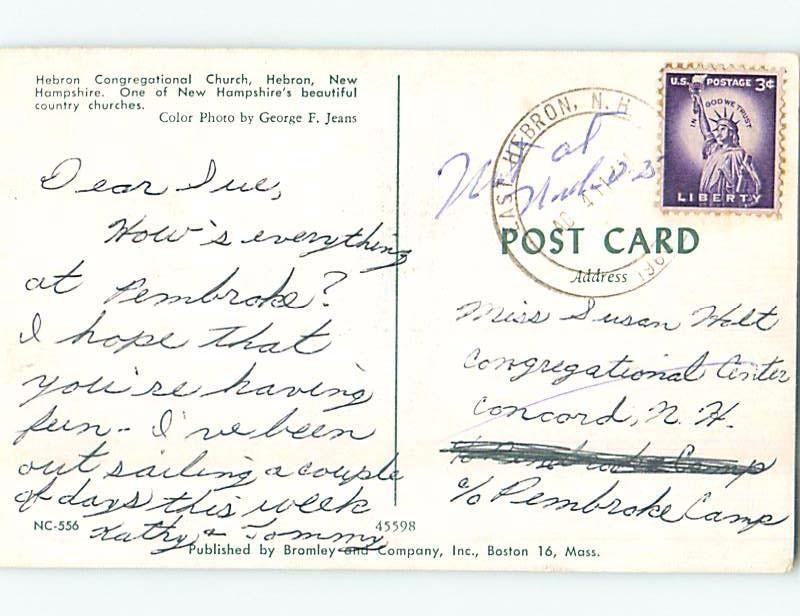 Hebron Congregational Church, Hebron, New
Hampshire. One of New Hampshire's beautiful
country churches.
Color Photo by George F. Jeans
Dear Sue,
How's everything
at Pembroke?
I hope that
you're having
fun - I've been
out sailing a couple
of days this week
Kathy & Tommy
NC-556
45598
Published by Bromley and Company, Inc., Boston 16, Mass.
U.S. POSTAGE 3¢
IN GOD WE TRUST
LIBERTY
EAST HEBRON, N.H.
at
POST CARD
Address
Miss Susan Holt
Congregational Center
Concord, N. H.
Camp
c/o Pembroke Camp